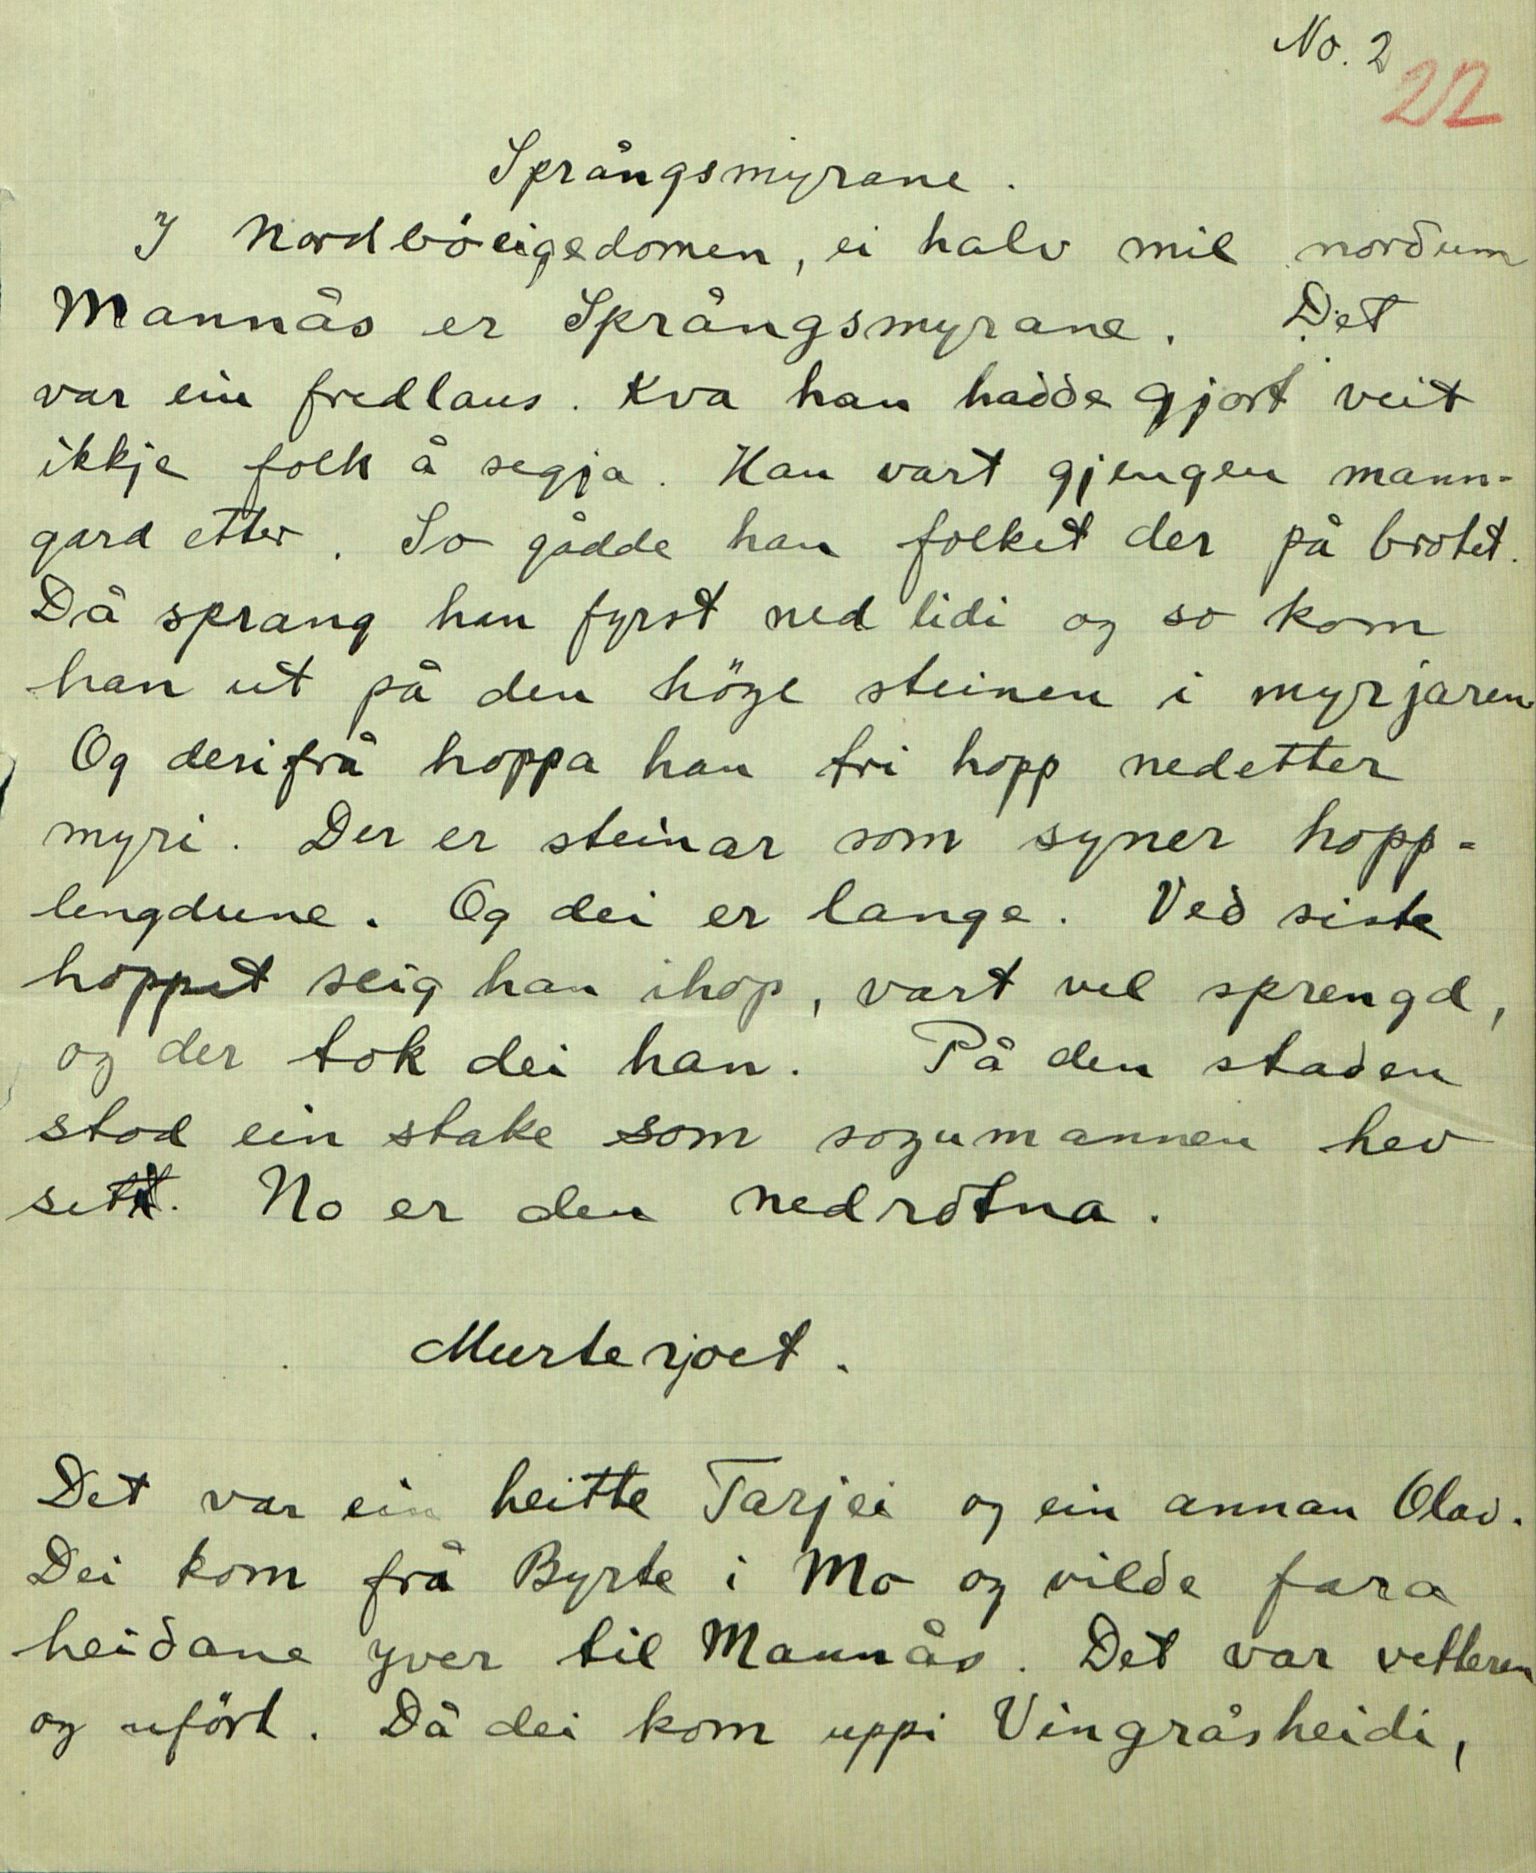 No. 2
22
Språngsmyrane.
I Nordböeigedomen, ei halv mil nordum
Mannås er Språngsmyrane. Det
var ein fredlaus. Kva han hadde gjort veit
ikkje folk å segja. Han vart gjengen mann-
gard etter. So gådde han folket der på brotet.
Då sprang han fyrst ned lidi og so kom
han ut på den höge steinen i myrjaren
Og derifrå hoppa han tri hopp nedetter
myri. Der er steinar som syner hopp-
lengdune. Og dei er lange. Ved siste
hoppet seig han ihop, vart vel sprengd,
og der tok dei han. På den staden
stod ein stake som sogumannen hev
sett. No er den nedrotna.
Murtesjoet.
Det var ein heitte Tarjei og ein annan Olav.
Dei kom frå Byrte i Mo og vilde fara
heidane yver til Mannås. Det var vetteren
og ufört. Då dei kom uppi Vingråsheidi,